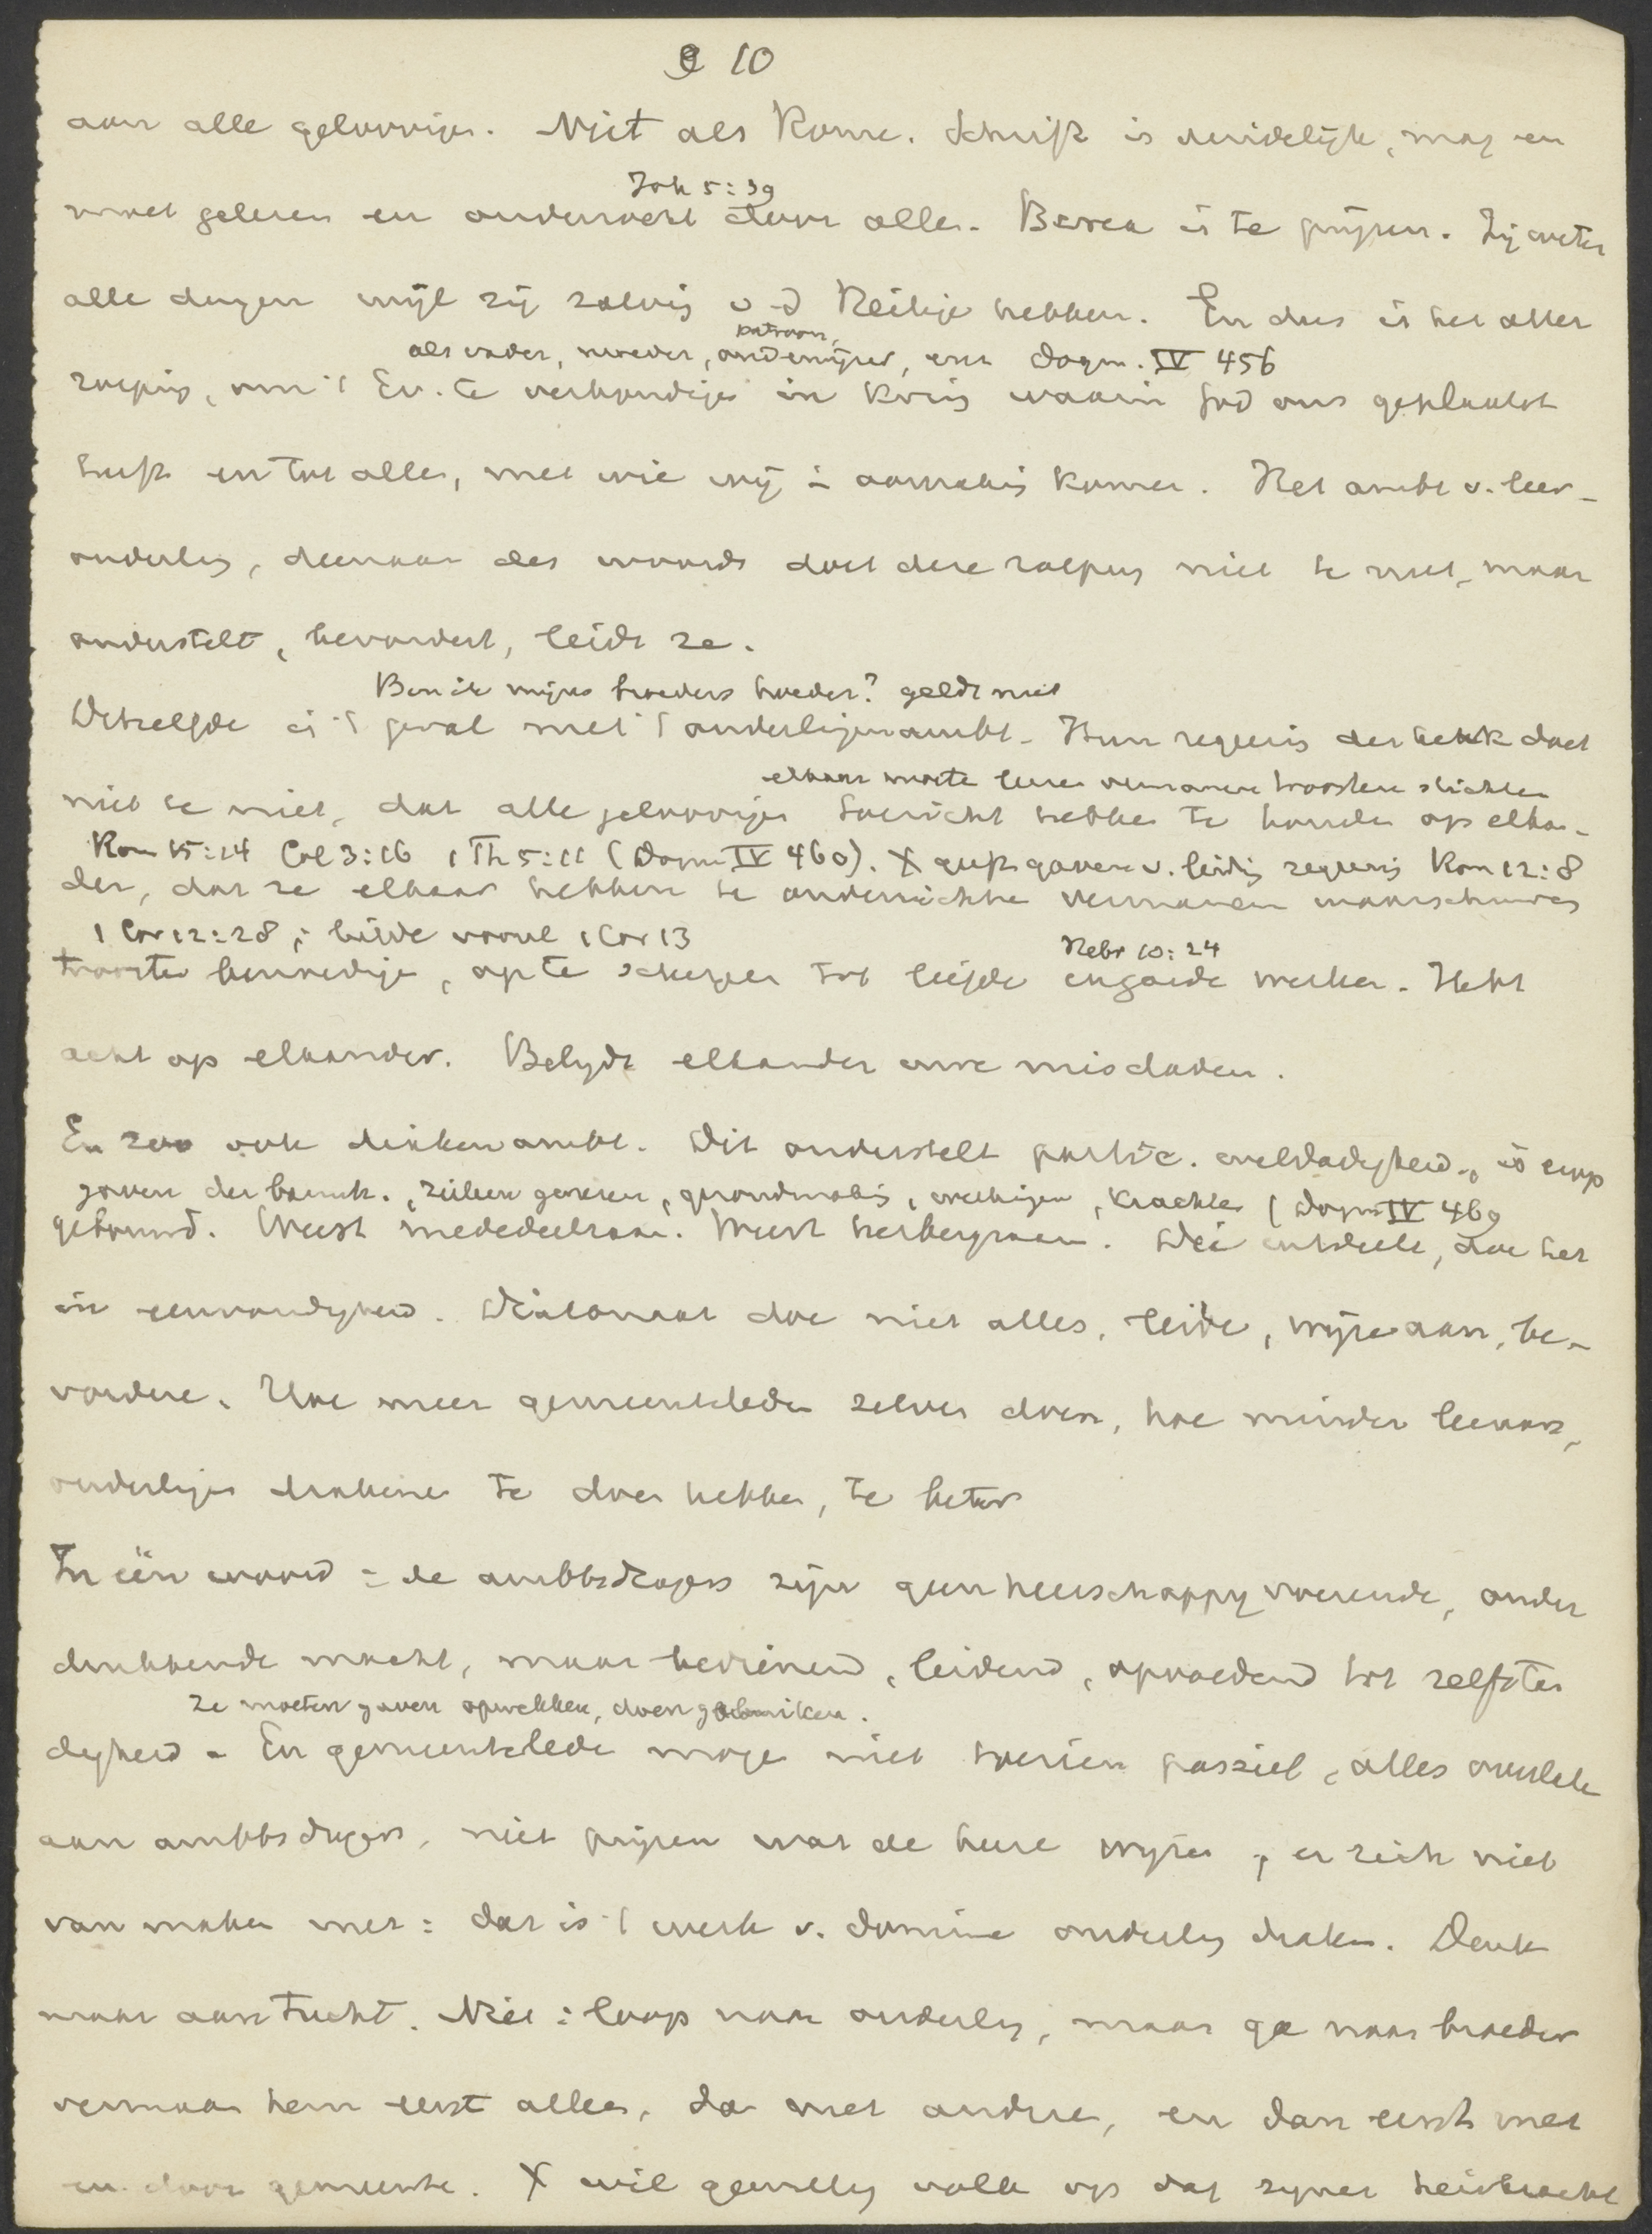 10
aan alle geloovigen. Niet als Rome. Schrift is duidelijk, mag en
Joh 5:39
moet gelezen en onderzocht door allen. Berea is te prijzen. Zij weten
alle dingen wijl zij zalving v d Heilige hebben. En dus is het aller
patroon,
als vader, moeder, onderwijzer, enz Dogm. IV 456
roeping, om 't Ev. te verkondigen in kring waarin God ons geplaatst
heeft en tot allen, met wie wij in aanraking komen. Het ambt v. leer-
ouderling, dienaar des woords doet deze roeping niet te niet, maar
onderstelt, bevordert, leidt ze.
Ben ik mijns broeders hoeder? geldt niet
Hetzelfde is 't geval met 't ouderlingenambt. Hun regeering der kerk doet
elkaar moeten leeren vermanen troosten stichten
niet te niet, dat alle geloovigen toezicht hebben te houden op elkan-
Rom 15:14 Col 3:16 1 Th 5:11 (Dogm IV 460). X geeft gaven v. leiding regeering Rom 12:8
der, dat ze elkaar hebben te onderrichten vermanen waarschuwen
1 Cor 12:28, liefde vooral 1 Cor 13
Hebr 10:24
troosten bemoedigen, op te scherpen tot liefde en goede werken. Hebt
acht op elkander. Belijdt elkander uwe misdaden.
En zoo ook diakenambt. Dit onderstelt partic. weldadigheid, is erop
gaven der barmh., zieken genezen, krachten (Dogm IV 469
gebouwd. Weest mededeelzaam. Weest herbergzaam. Die uitdeelt, doe het
in eenvoudigheid. Diakonaat doe niet alles, leide, wijze aan, be-
vordere. Hoe meer gemeenteleden zelven doen, hoe minder leeraars,
ouderlingen diakenen te doen hebben, te beter
In één woord = de ambtsdragers zijn geen heerschappij voerende, onder
drukkende macht, maar bedienend, leidend, opvoedend tot zelfstan
ze moeten gaven opwekken, doen gebruiken.
digheid. En gemeenteleden mogen niet toezien passief, alles overlaten
aan ambtsdragers, niet prijzen wat de heere wijzen, er zich niet
van maken met: dat is 't werk v. dominé ouderling diaken. Denk
maar aan tucht. Niet: loop naar ouderling, maar ga naar broeder
vermaan hem eerst alleen, dan met andere, en dan eerst met
en door gemeente. X wil gewillig volk op dag zijner heirkracht